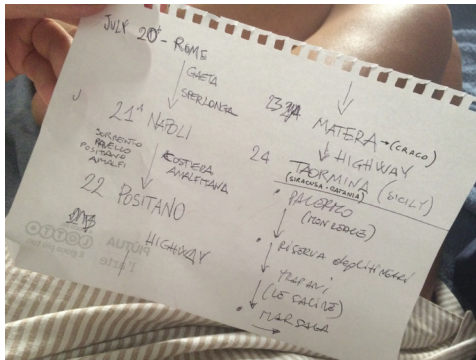 JULY 20st - ROME
GAETA
SPERLONGA
21st NAPOLI
SORRENTO
RAVELLO
POSITANO
AMALFI
COSTIERA
AMALFITANA
22 POSITANO
HIGHWAY
MATERA → (CRACO)
HIGHWAY
24
TAORMINA (SICILY)
(SIRACUSA - CATANIA)
PALERMO
(MONREALE)
RISERVA degli ZINGARI
TRAPANI
(LE SALINE)
MARSALA